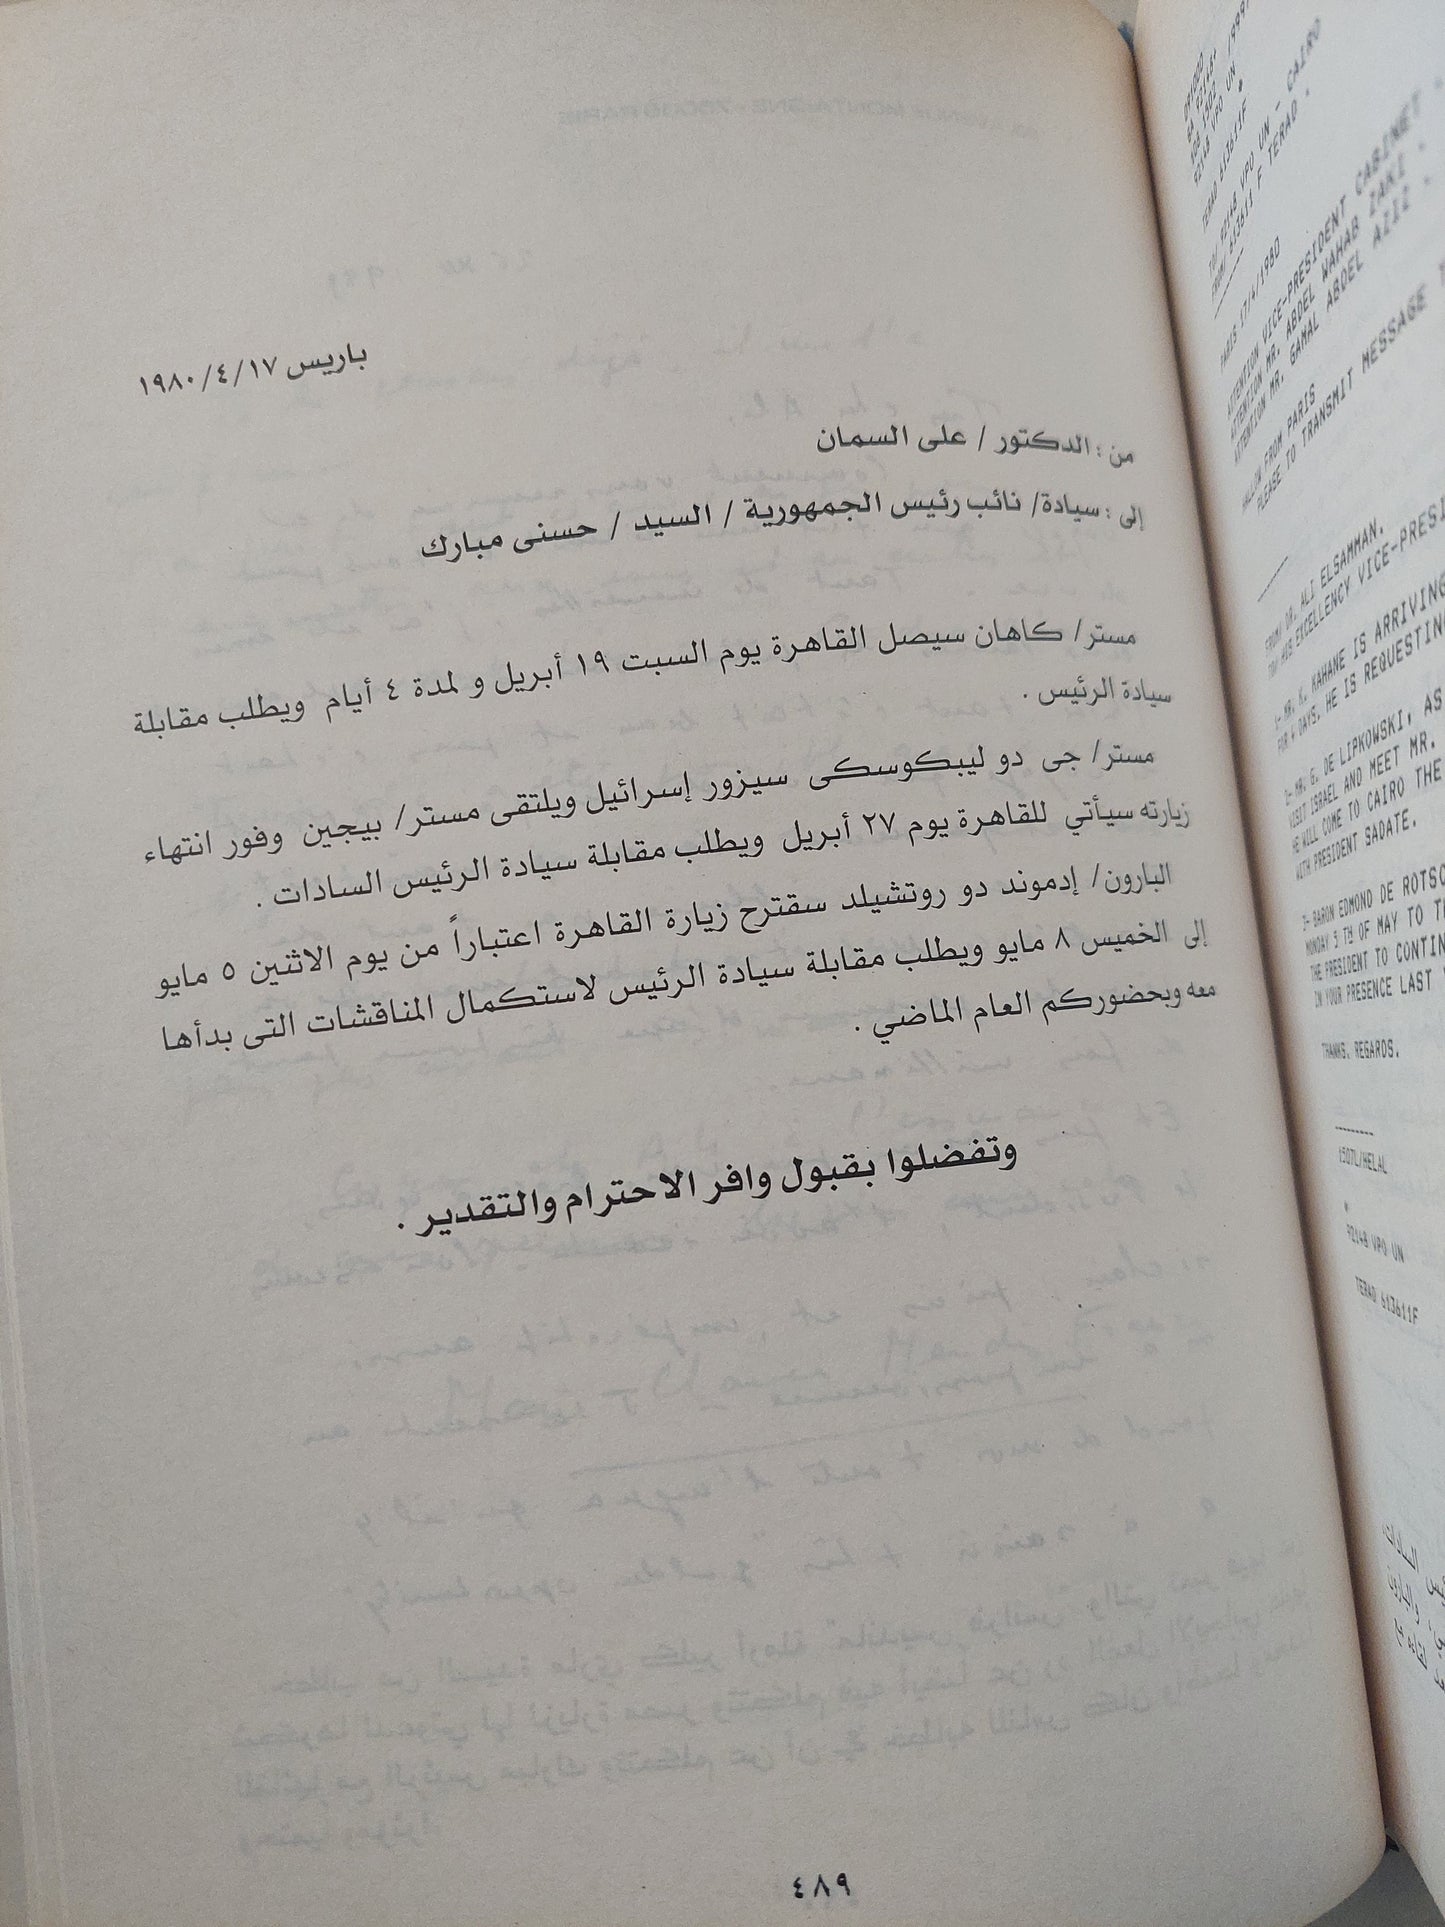 باريس ١٩٨٠/٤/١٧
من : الدكتور / على السمان
إلى : سيادة/ نائب رئيس الجمهورية / السيد / حسنى مبارك
مستر/ كاهان سيصل القاهرة يوم السبت ١٩ أبريل و لمدة ٤ أيام ويطلب مقابلة
سيادة الرئيس .
مستر/ جى دو ليبكوسكى سيزور إسرائيل ويلتقى مستر/ بيجين وفور انتهاء
زيارته سيأتي للقاهرة يوم ٢٧ أبريل ويطلب مقابلة سيادة الرئيس السادات .
البارون/ إدموند دو روتشيلد سقترح زيارة القاهرة اعتباراً من يوم الاثنين ٥ مايو
إلى الخميس ٨ مايو ويطلب مقابلة سيادة الرئيس لاستكمال المناقشات التى بدأها
معه وبحضوركم العام الماضي .
وتفضلوا بقبول وافر الاحترام والتقدير .
٤٨٩
92148 VPO UN
TERAD 613611F
TO/ 92148 VPO UN - CAIRO
FROM/ 613611 F TERAD .
PARIS 17/4/1980
ATTENTION VICE-PRESIDENT CABINET
ATTENTION MR. ABDEL WAHAB ZAKI .
ATTENTION MR. GAMAL ABDEL AZIZ .
FROM PARIS
PLEASE TO TRANSMIT MESSAGE
FROM/ DR. ALI ELSAMMAN.
TO/ HIS EXCELLENCY VICE-PRESI
1- MR. K. KAHANE IS ARRIVING
FOR 4 DAYS. HE IS REQUESTIN
2- MR. G. DE LIPKOWSKI, AS
VISIT ISRAEL AND MEET MR.
HE WILL COME TO CAIRO THE
WITH PRESIDENT SADATE.
BARON EDMOND DE ROTSC
MONDAY 5 TH OF MAY TO TH
THE PRESIDENT TO CONTIN
IN YOUR PRESENCE LAST
THANKS. REGARDS.
ISOTL/HELAL
92148 VPO UN
TERAD 613611F